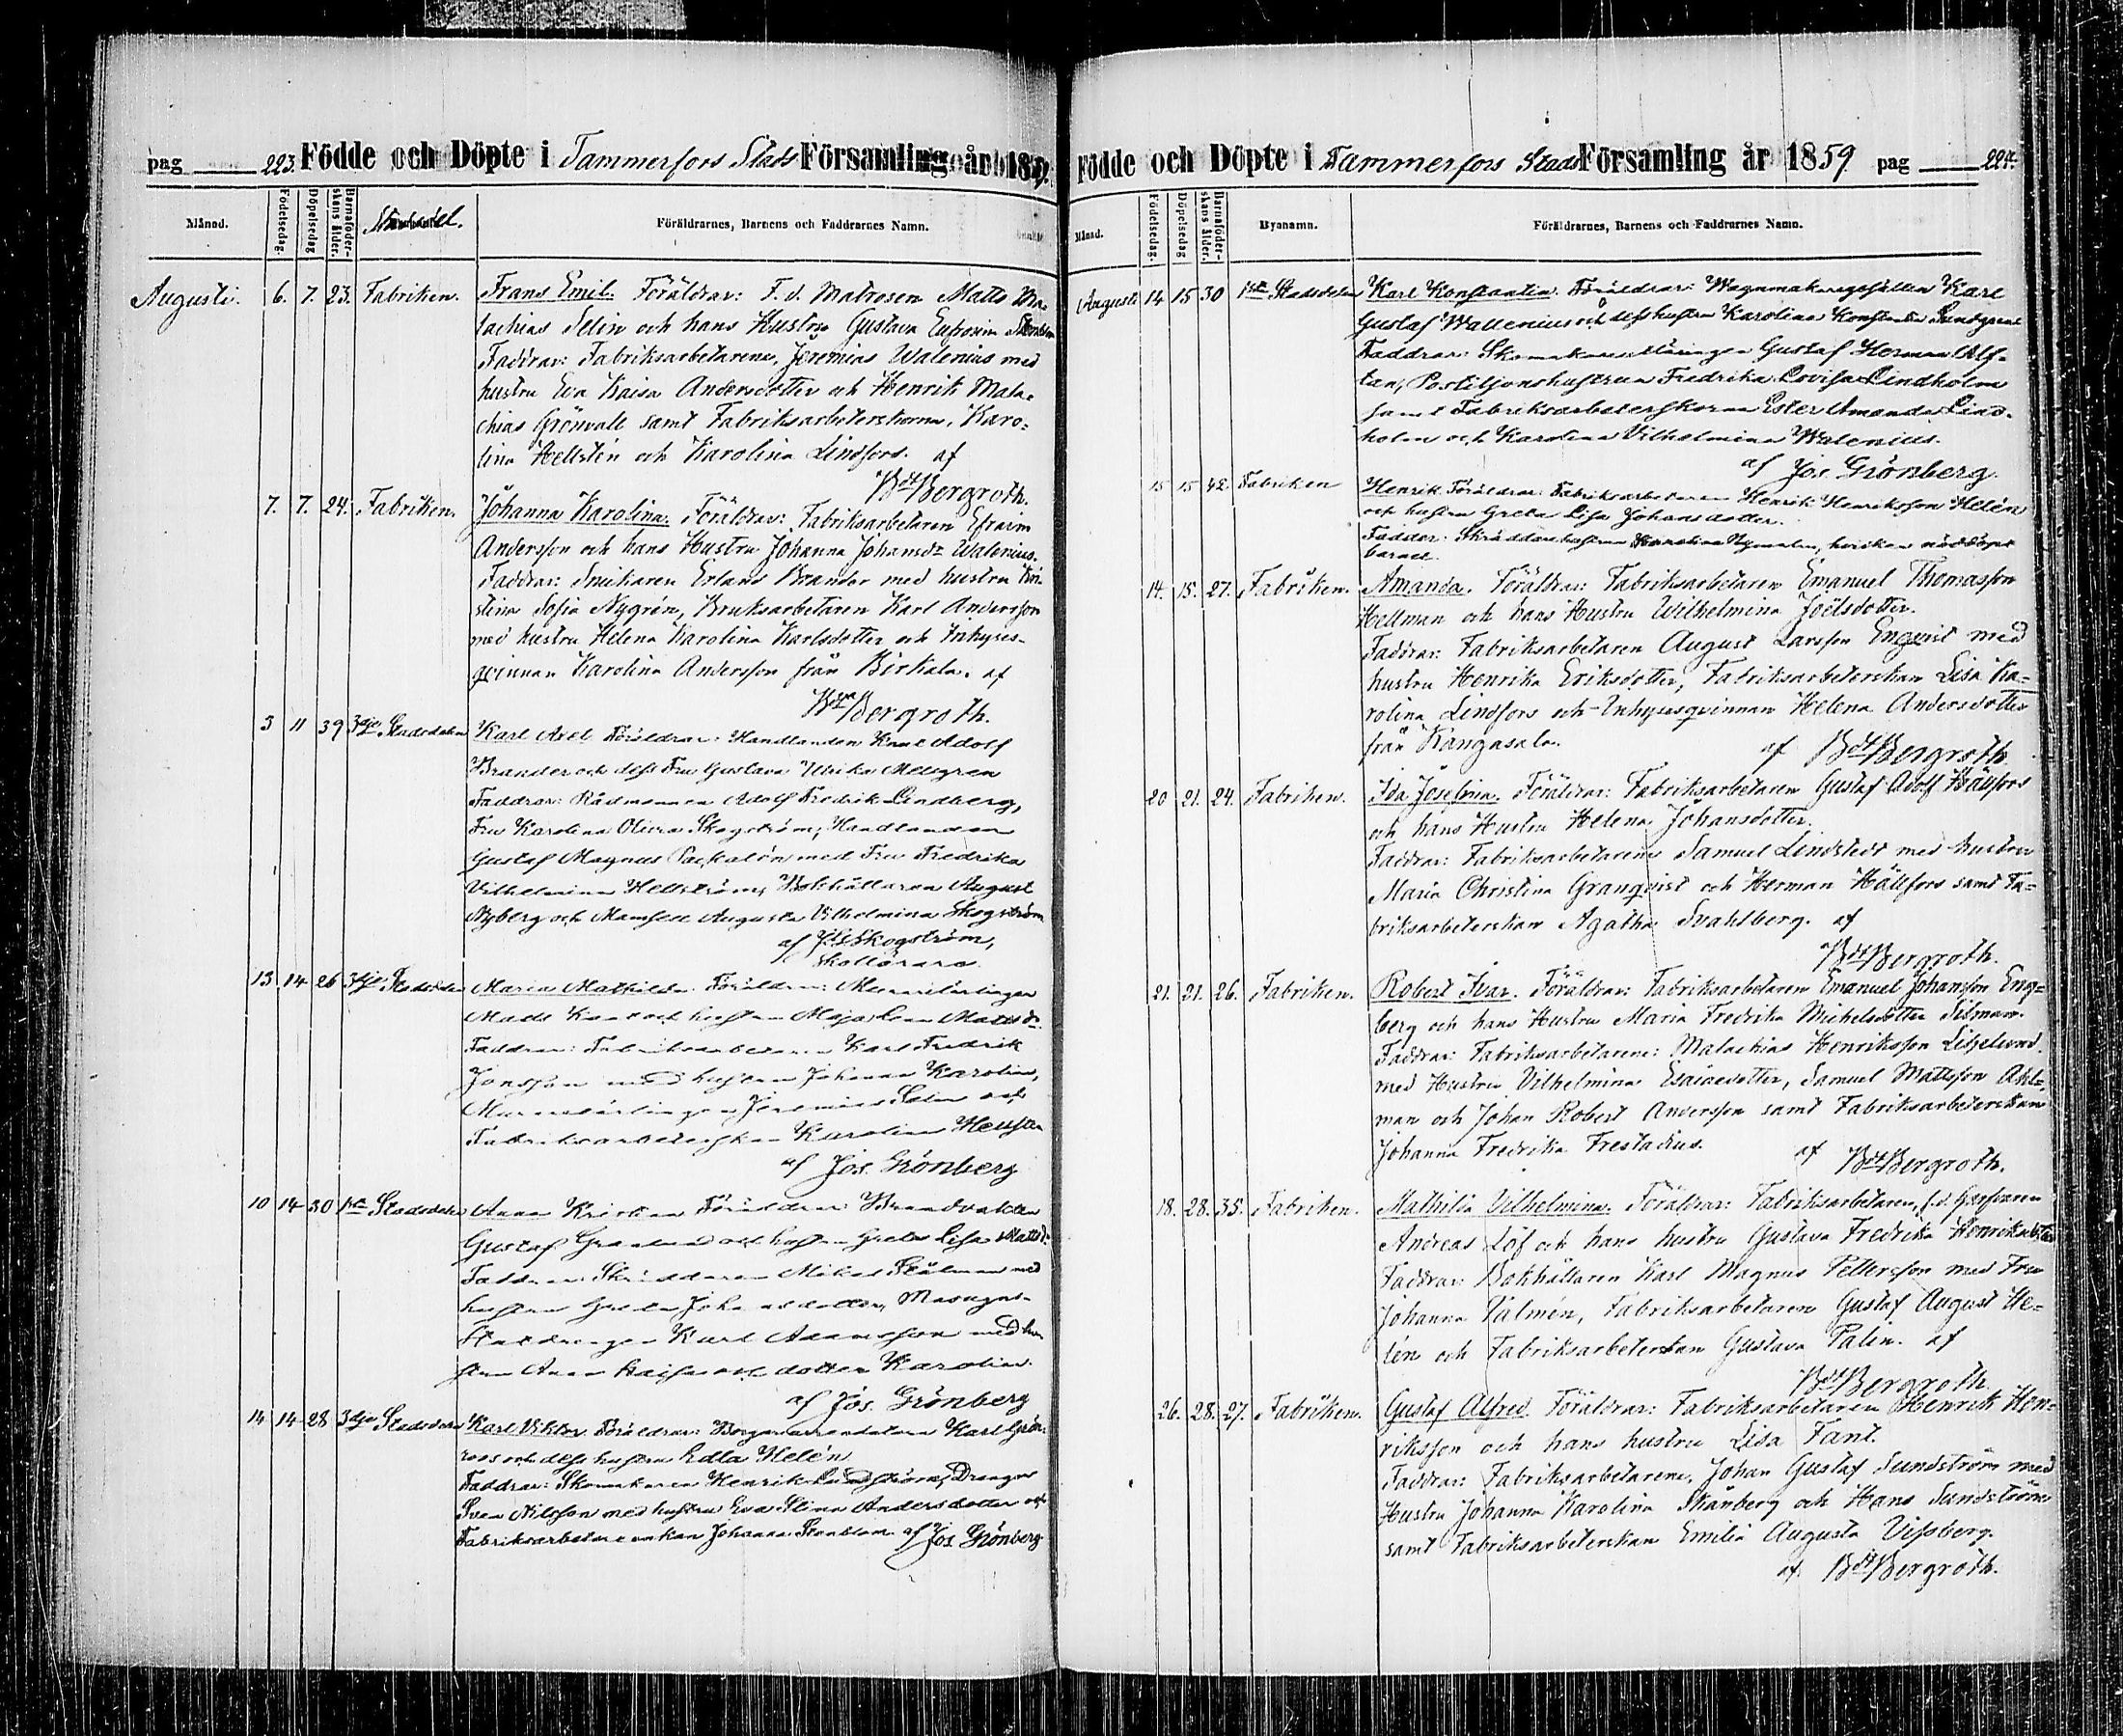 pag 223. Födde och Döpte i Tammerfors Stads Församling år 1859.
Månad. Födelsedag. Döpelsedag Barnaföderskans ålder. Stadsdel. Föräldrarnes, Barnens och Faddrarnes Namn.
Augusti. 6. 7. 23. Fabriken. Frans Emil. Föräldrar: F. d. Matrosen Matts Ma-
lachias Selin och hans Hustru Gustava Eufrosina
Faddrar: Fabriksarbetarene, Jeremias Walenius med
hustru Eva Kaisa Andersdotter och Henrik Mala-
chias Grönvall samt Fabriksarbeterskorna, Karo-
lina Hellstén och Karolina Lindfors. af
Bdt Bergroth.
7. 7. 24. Fabriken. Johanna Karolina. Föräldrar: Fabriksarbetaren Efraim
Andersson och hans Hustru Johanna Johansdr Walenius.
Faddrar: Snickaren Erland Brander med hustru Kri-
stina Sofia Nygrén, Bruksarbetaren Karl Andersson
med hustru Helena Karolina Karlsdotter och Inhyses-
qvinnan Karolina Andersson från Birkala. af
Bdt Bergroth.
3 11 39 3dje Stadsdelen Karl Axel Föräldrar: Handlanden Knut Adolf
Brander och dess Fru Gustava Ulrika Mellgren
Faddrar: Rådmannen Adolf Fredrik Lindberg,
Fru Karolina Olivia Skogström, Handlanden
Gustaf Magnus Packalén med Fru Fredrika
Vilhelmina Hellström, Bokhållaren August
Nyberg och Mamsell Augusta Vilhelmina Skogström
af Skogström,
Skollärare.
13 14 26 3dje Stadsdelen Maria Mathilda. Föräldrar: Murarelärlingen
Matts och hustru Maja Lena Mattsdr
Faddrar: Fabriksarbetaren Karl Fredrik
Jonsson med hustru Johanna Karolina,
Murarelärlingen Jeremias Selin och
Fabriksarbeterskan Karolina
af Jos. Grönberg
10 14 30 1sta Stadsdelen Anna Kristina Föräldrar Brandvakten
Gustaf Granlund och hustru Greta Lisa Mattsdr
Faddrar: Skräddaren Mikel Stålman med
hustru Greta Johansdotter, Masugns-
Statdrengen Karl Adamsson med hu-
stru Anna Kaisa och dotter Karolina.
af Jos. Grönberg
14 14 28 3dje Stadsdelen Karl Viktor. Föräldrar: Karl Grön-
roos och dess hustru Edla Helén
Faddrar: Skomakaren Henrik Lindström, Drengen
Sven Nilsson med hustru Eva Stina Andersdotter och
Fabriksarbeterskan Johanna Stenblom af Jos. Grönberg
Födde och Döpte i Tammerfors Stads Församling år 1859 pag 224.
Månad. Födelsedag. Döpelsedag Barnaföderskans ålder. Byanamn. Föräldrarnes, Barnens och Faddrarnes Namn.
Augusti 14 15 30 1sta Stadsdelen Karl Konstantin. Föräldrar: Wagnmakaregesällen Karl
Gustaf Wallenius och dess hustru Karolina Konstantia Sundgren
Faddrar: Skomakarelärlingen Gustaf Herman Alf-
tan, Postiljonshustrun Fredrika Lovisa Lindholm
samt Fabriksarbeterskorna Ester Amanda Lind-
holm och Karolina Vilhelmina Walenius.
af Jos. Grönberg.
15 15 42 Fabriken Henrik Föräldrar: Fabriksarbetaren Henrik Henriksson Helén
och hustru Greta Lisa Johansdotter.
Fadder: Skräddarehustrun Karolina Nyman, hvilken nöddöpt
barnet.
14. 15. 27. Fabriken. Amanda. Föräldrar: Fabriksarbetaren Emanuel Thomasson
Hellman och hans Hustru Wilhelmina Joëlsdotter.
Faddrar: Fabriksarbetaren August Larsson Enqvist med
hustru Henrika Eriksdotter, Fabriksarbeterskan Lisa Ka-
rolina Lindfors och Inhysesqvinnan Helena Andersdotter
från Kangasala. af Bdt Bergroth.
20 21. 24. Fabriken. Ida Josefina. Föräldrar: Fabriksarbetaren Gustaf Adolf Hällfors
och hans Hustru Helena Johansdotter.
Faddrar: Fabriksarbetarene Samuel Lindstedt med hustru
Maria Christina Granqvist och Herman Hällfors samt Fa-
briksarbeterskan Agatha Svahlberg. af
Bdt Bergroth.
21. 21. 26. Fabriken. Robert Ivar. Föräldrar: Fabriksarbetaren Emanuel Johansson Eng-
berg och hans Hustru Maria Fredrika Michelsdotter Silman.
Faddrar: Fabriksarbetarene: Malachias Henriksson Liljelund
med Hustru Vilhelmina Esaiædotter, Samuel Mattsson Ahl-
man och Johan Robert Andersson samt Fabriksarbeterskan
Johanna Fredrika Frestadius. af Bdt Bergroth.
18. 28. 35. Fabriken. Mathilda Vilhelmina. Föräldrar: Fabriksarbetaren, f.d.
Andreas Löf och hans hustru Gustava Fredrika Henriksdotter
Faddrar: Bokhållaren Karl Magnus Pettersson med Fru
Johanna Palmén, Fabriksarbetaren Gustaf August He-
lén och Fabriksarbeterskan Gustava Palin. af
Bdt Bergroth.
26. 28. 27. Fabriken. Gustaf Alfred. Föräldrar: Fabriksarbetaren Henrik Hen-
riksson och hans hustru Lisa Fant.
Faddrar: Fabriksarbetarene, Johan Gustaf Sundström med
Hustru Johanna Karolina Skånberg och Hans Sundström
samt Fabriksarbeterskan Emilia Augusta Vissberg.
af Bdt Bergroth.